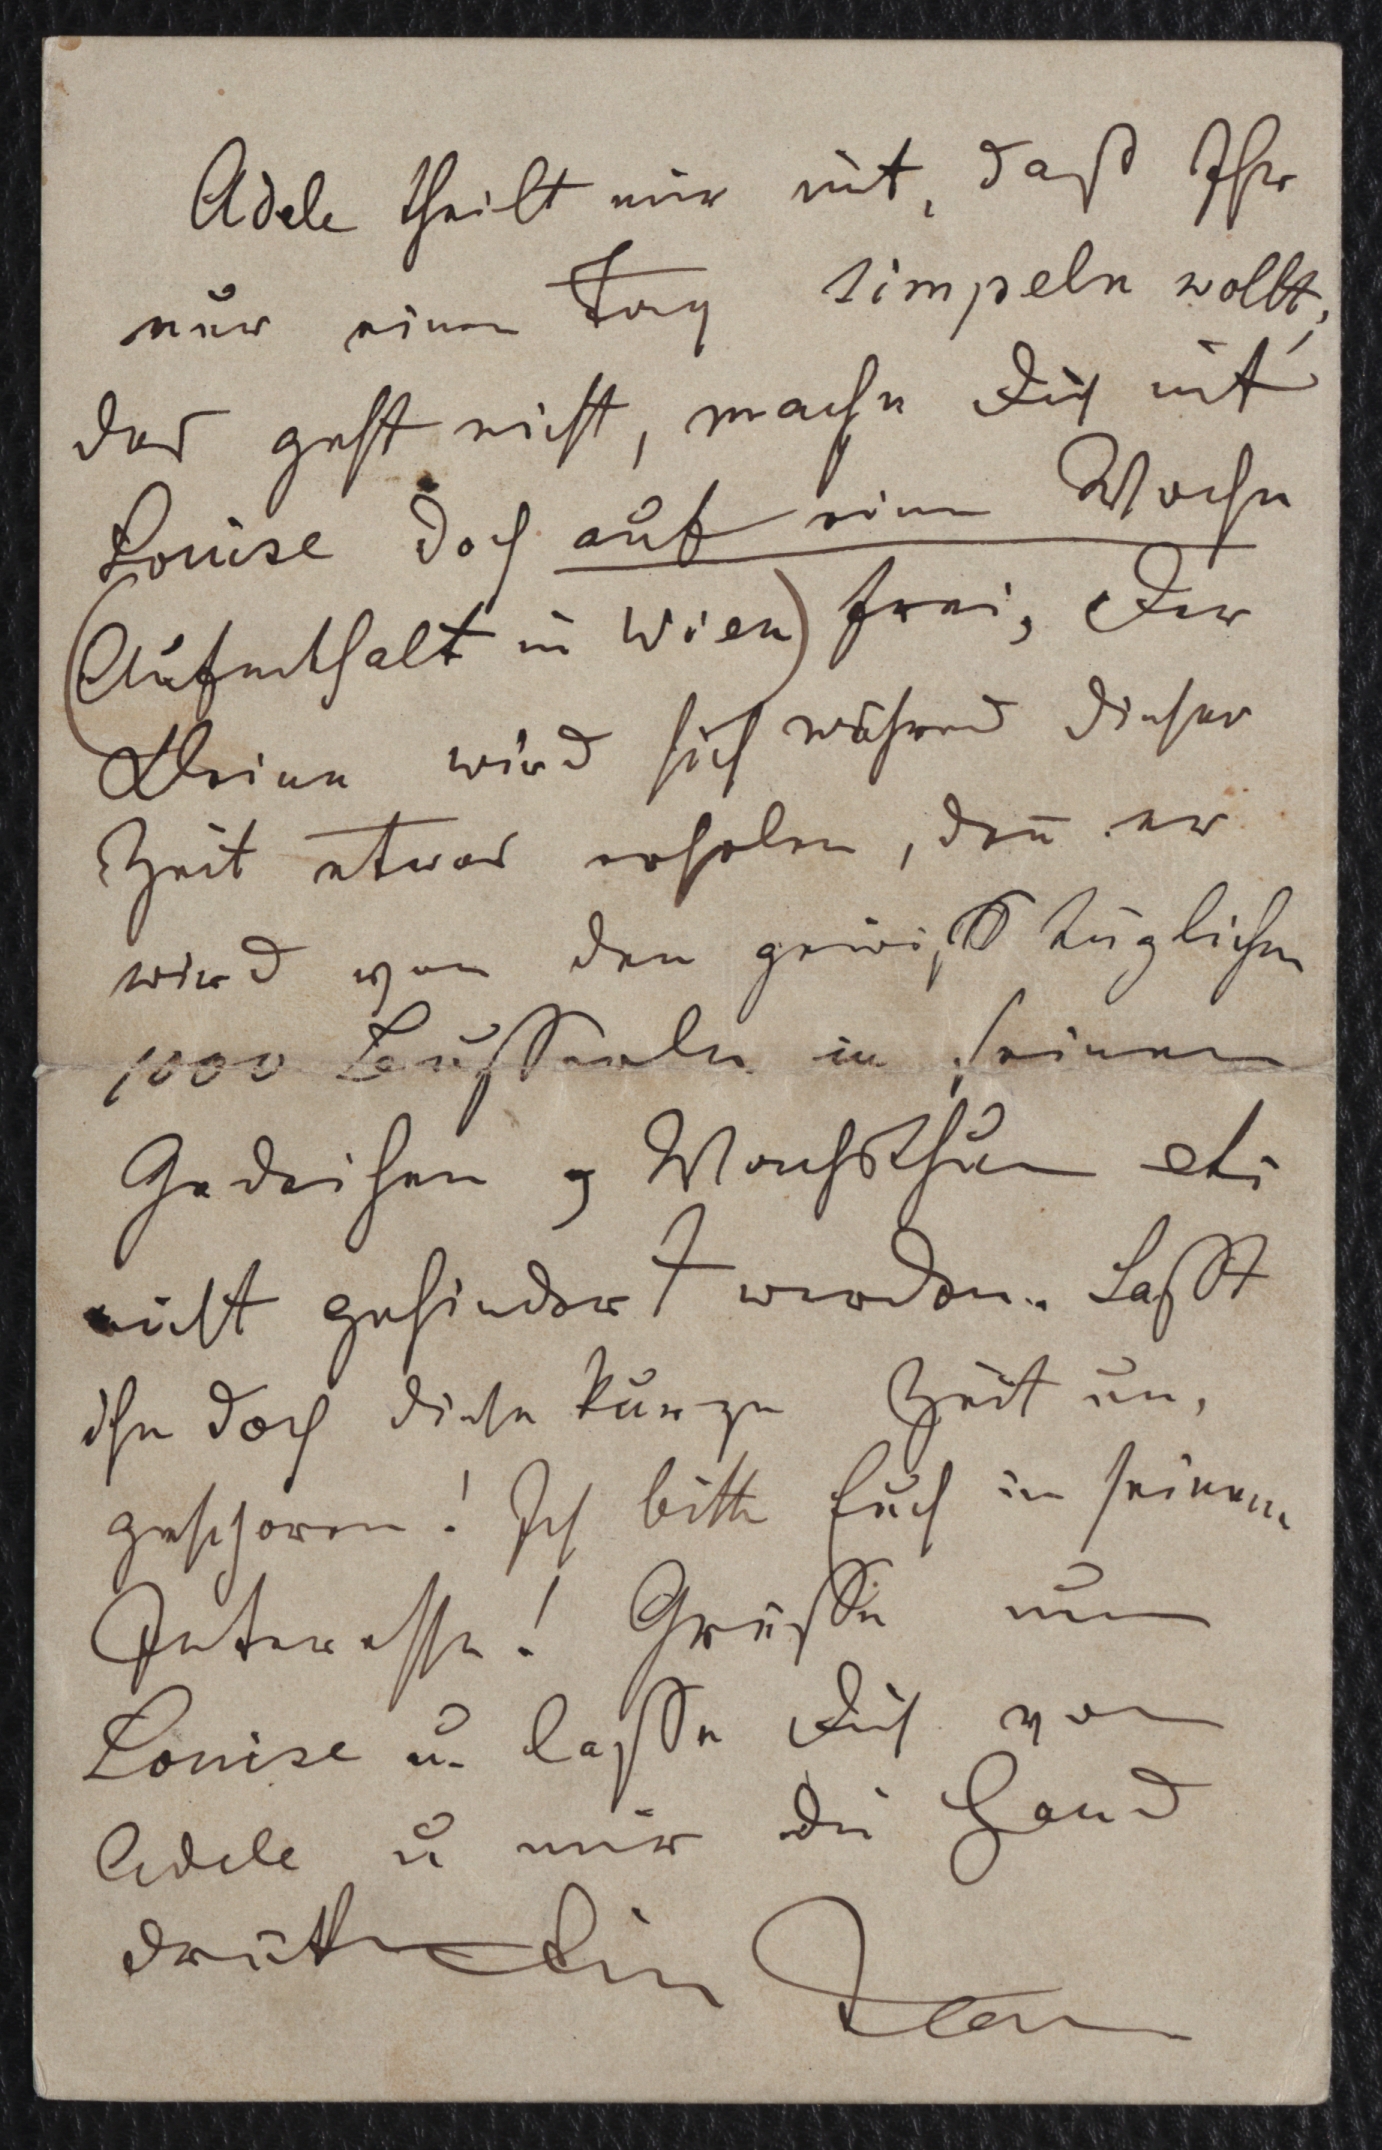 Adele theilt mir mit, daß Ihr
nur einen Tag simpeln wollt,
das geht nicht, mache Dich mit
Louise doch auf eine Woche
(Aufenthalt in Wien) frei, Der
Kleine wird sich während dieser
Zeit etwas erholen, den̅ er
wird von den gewiß täglichen
1000 Busserln in seinem
Gedeihen, Wachsthum etc
nicht gehindert werden. Laßt
ihn doch diese kurze Zeit un,
geschoren! Ich bitte Euch in seinem
Interesse! Grüsse nun
Louise u. lasse Dich von
Adele u mir die Hand
drücken Dein Jean